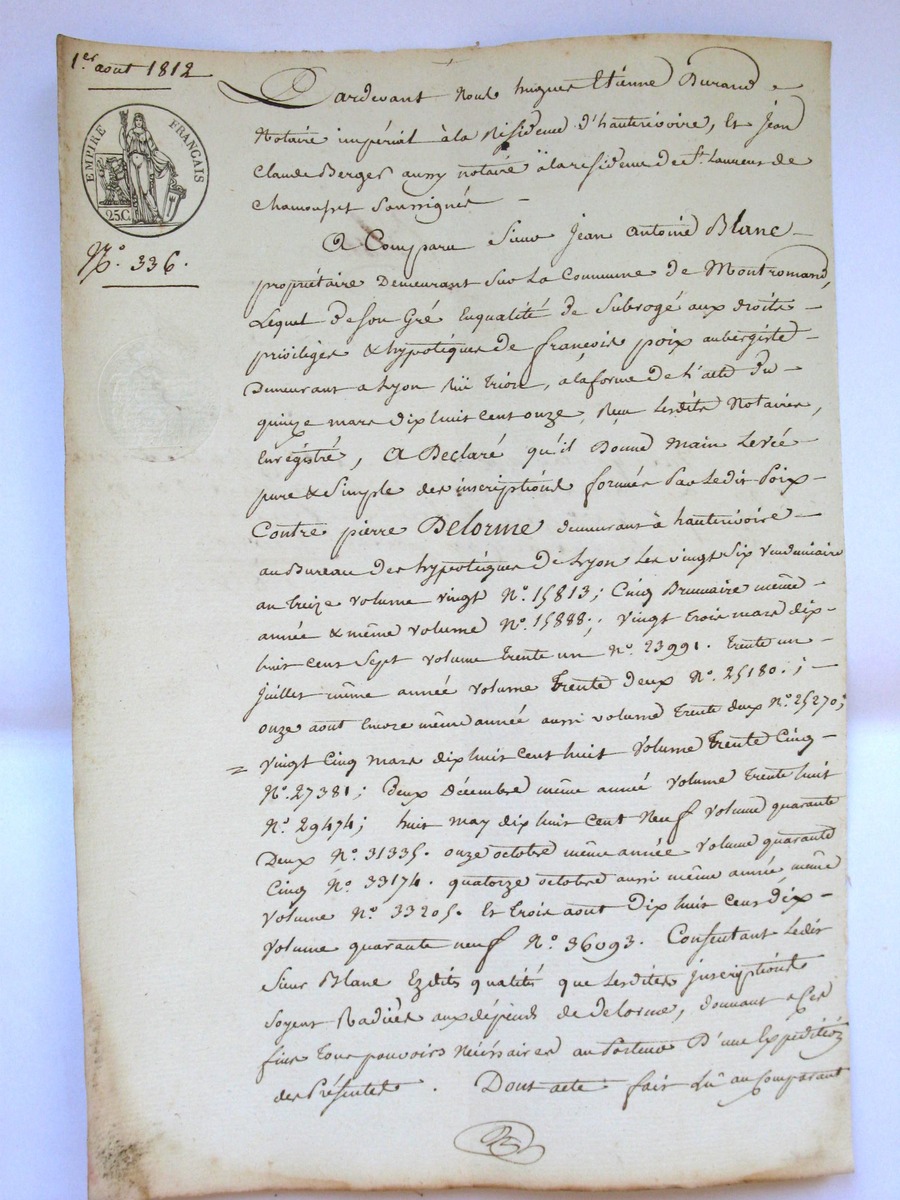 1er aout 1812
EMPIRE FRANÇAIS
25C.
N.° 336.
Pardevant Nous hugues Etienne Durand
Notaire impérial à la Residence d'hauterivoire, Et Jean
Claude Berger aussy notaire à la residence de St Laurent de
Chamousset Soussignés
A Comparu Sieur Jean Antoine Blanc
propriétaire Demeurant Sur La Commune de Montromand,
Lequel de son Gré Enqualité de Subrogé aux droits
priviléges & hypotéques de françois poix aubergiste
Demeurant a Lyon Rüe Trion, a la forme de L'acte du
quinze mars dix huit cent onze, Reçu Lesdits Notaires,
Enregistré, A Declaré qu'il Donne Main Levée
pure & Simple des inscriptions formées Par Ledit Poix
Contre pierre Delorme demeurant à hauterivoire
au Bureau des hypotéques de Lyon Les vingt Six Vendemiaire
an treize volume vingt N.° 15813; Cinq Brumaire même
année & même volume N.° 15888; vingt trois mars dix
huit cent Sept volume trente un N.° 23991. trente un
juillet même année volume trente deux N.° 25180.;
onze aout Encore même année aussi volume trente deux N.° 25270;
= vingt Cinq mars dix huit cent huit volume trente Cinq
N.° 27381; deux Décembre même année volume trente huit
N.° 29474; huit may dix huit cent Neuf volume quarante
Deux N.° 31335. onze octobre même année volume quarante
Cinq N.° 33174. quatorze octobre aussi même année, même
volume N.° 33205. Et trois aout Dix huit cent dix
volume quarante neuf N.° 36093. Consentant Ledit
Sieur Blanc Ezdits qualité que Lesdites inscriptions
soyent Radiées aux dépends de delorme, donnant a ces
fins tous pouvoirs Nécéssaires au Porteur D'une Expedition
des Présentes. Dont acte: fait Lû au Comparant